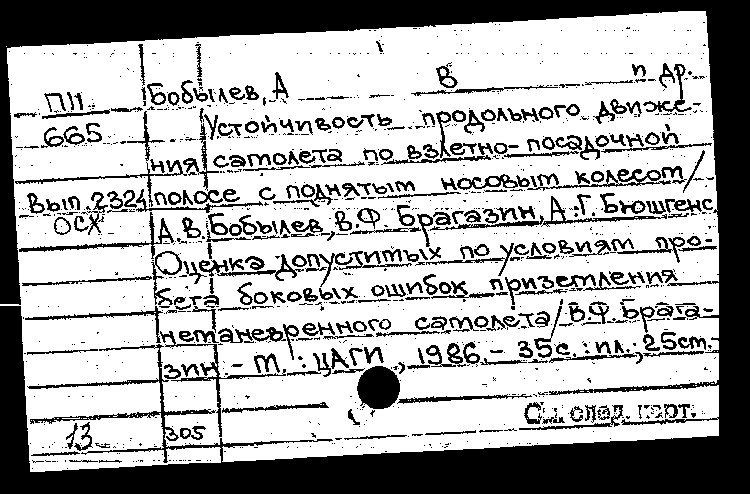 П11 Бобылев, А В и др.
665 Устойчивость продольного движе-
ния самолета по взлетно-посадочной
Вып. 2324 полосе с поднятым носовым колесом/
ОСХ А.В. Бобылев, В.Ф. Брагазин, А.Г. Бюшгенс
Оценка допустимых по условиям про-
бега боковых ошибок приземления
неманевренного самолета/ В.Ф. Брага-
зин. - М.: ЦАГИ, 1986. - 35с.: ил.; 25см.-
См. след. карт.
13 305